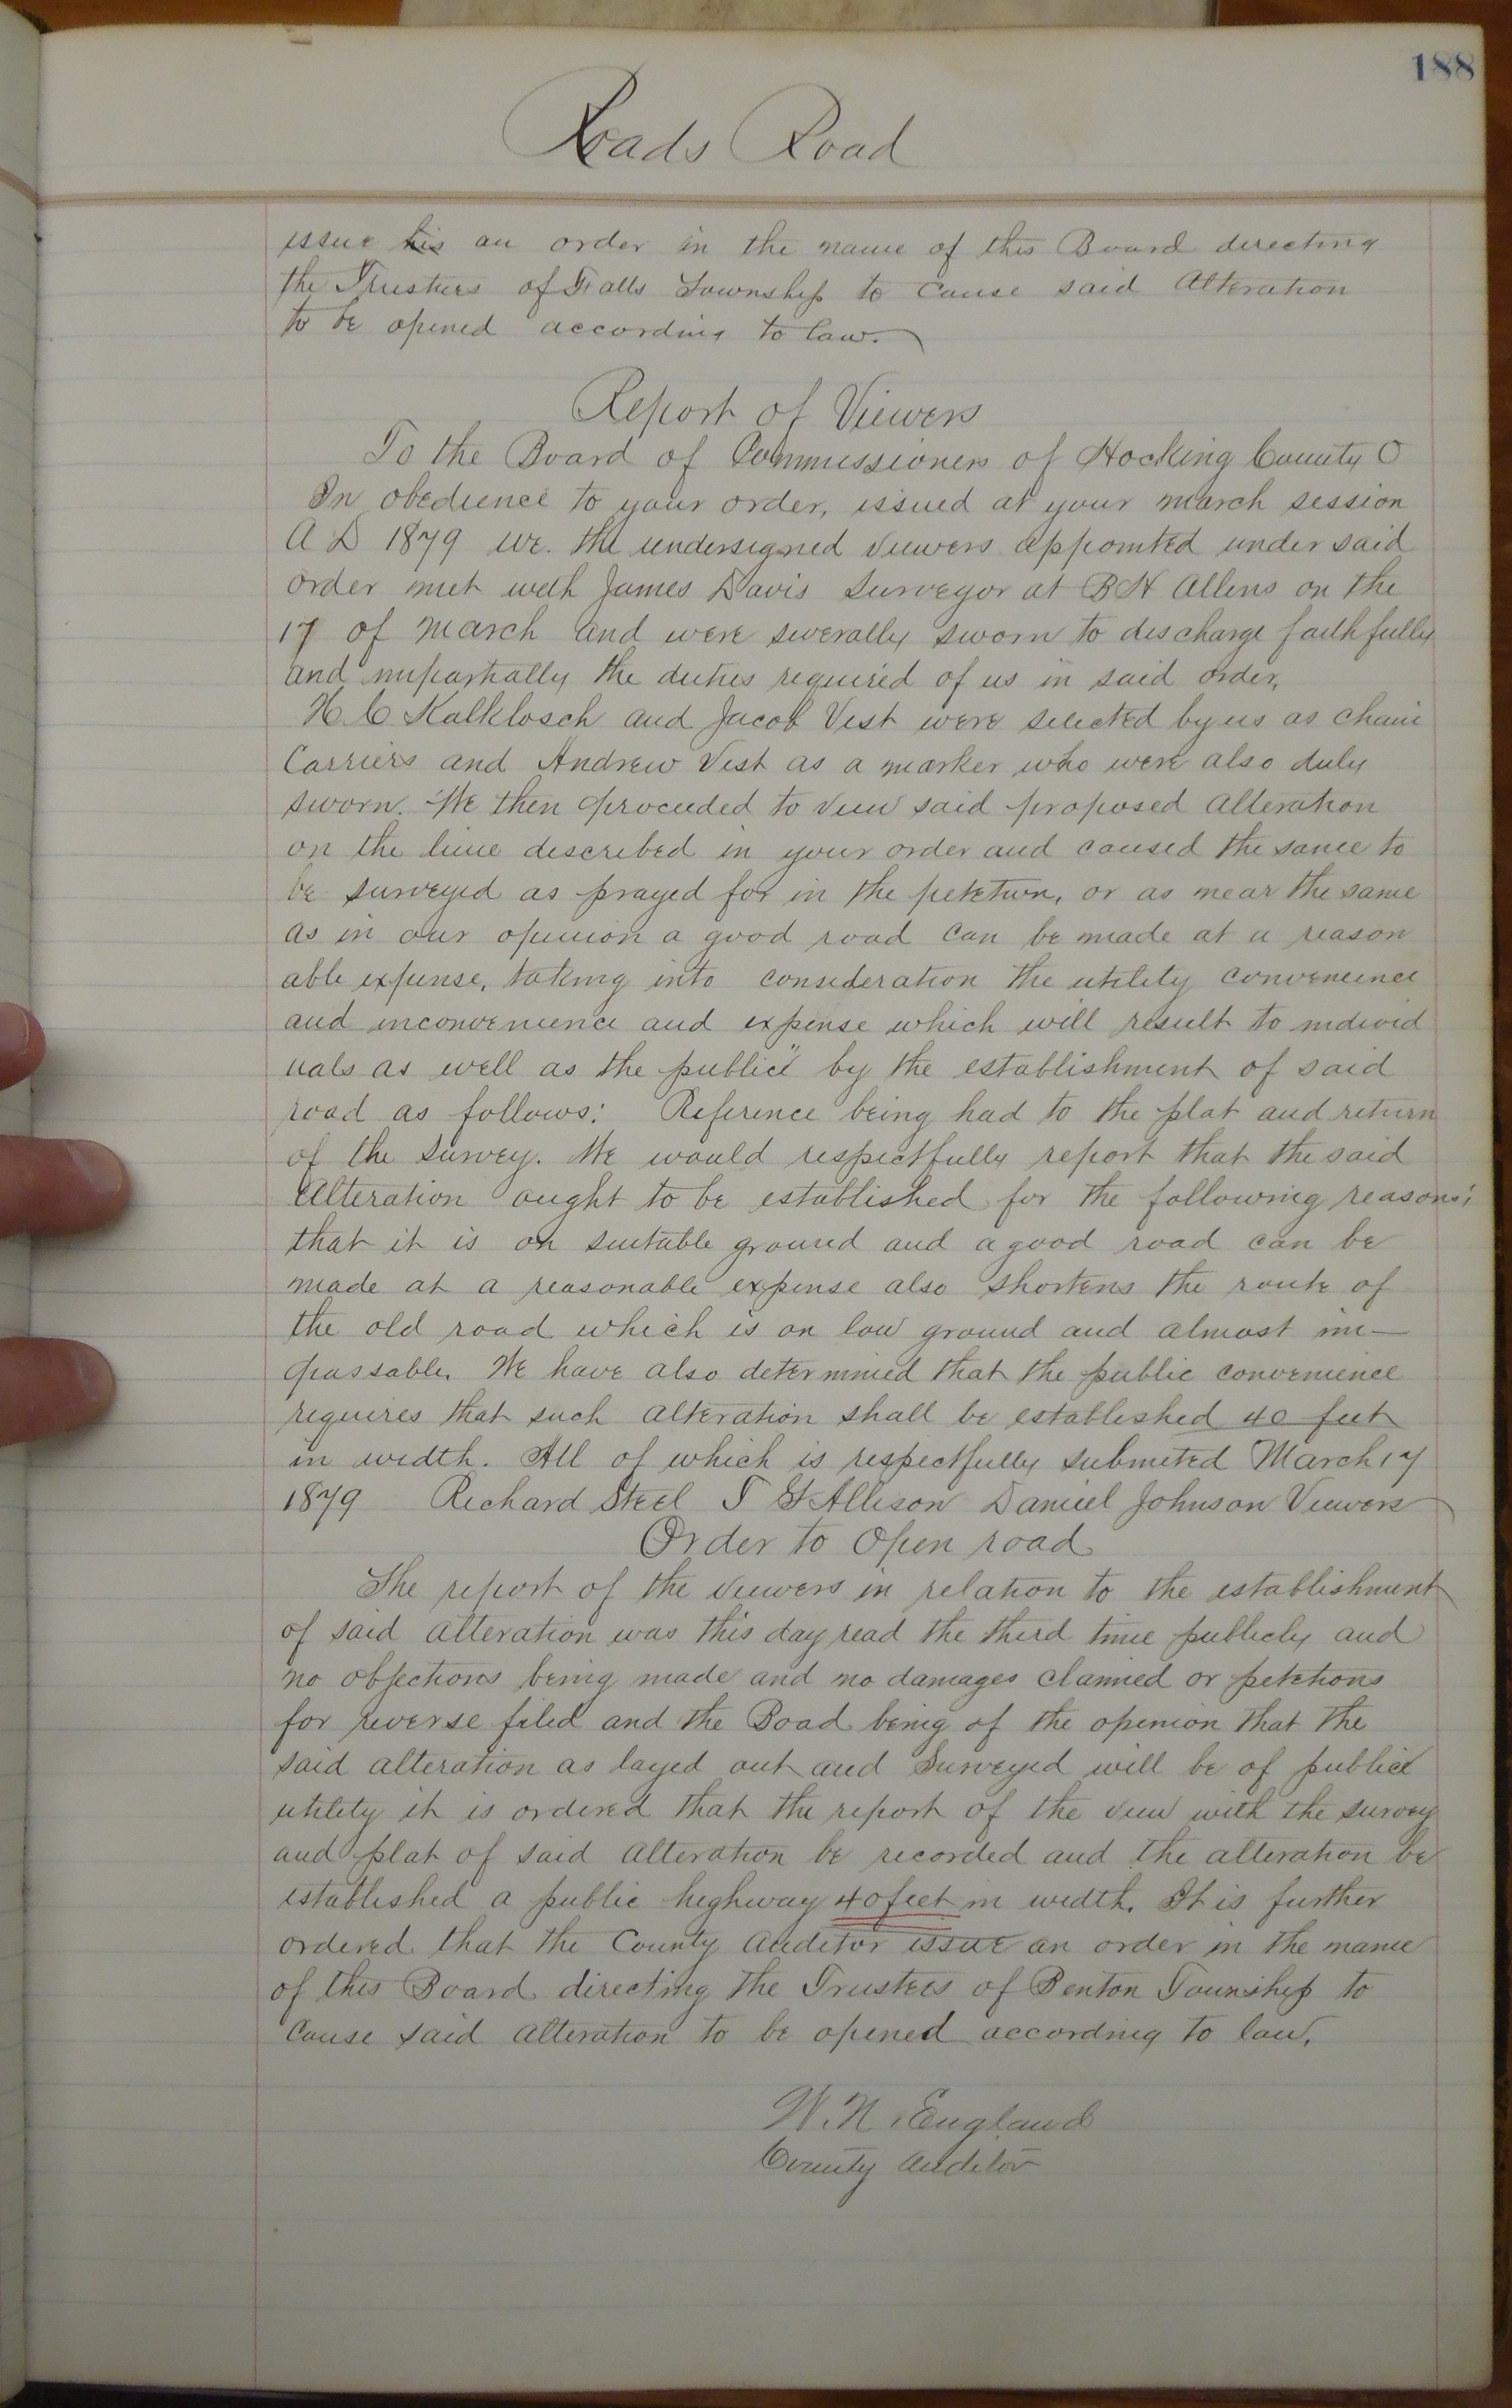 188
Roads Road
issue his an order in the name of this Board directing
the Trustees of Falls Township to Cause said Alteration
to be opened according to law.
Report of Viewers
To the Board of Commissioners of Hocking County O
In obedience to your order, issued at your march session
A D 1879 we. the undersigned viewers appointed under said
order met with James Davis Surveyor at B H Allens on the
17 of march and were severally sworn to discharge faithfully
and impartially the duties required of us in said order,
H. C Kalklosch and Jacob Vest were selected by us as chain
Carriers and Andrew Vest as a marker who were also duly
sworn. We then proceeded to view said proposed alteration
on the line described in your order and caused the same to
be surveyed as prayed for in the petetion, or as near the same
as in our opinion a good road can be made at a reason
able expense, taking into consideration the utility convenience
and inconvenience and expense which will result to individ
uals as well as the public" by the establishment of said
road as follows: Reference being had to the plat and return
of the Survey. We would respectfully report that the said
Alteration ought to be established for the following reasons;
that it is on suitable ground and a good road can be
made at a reasonable expense also shortens the route of
the old road which is on low ground and almost im-
passable. We have also determined that the public convenience
requires that such alteration shall be established 40 feet
in width. All of which is respectfully submited March 17
1879 Richard Steel T Allison Daniel Johnson Viewers
Order to Open road
The report of the viewers in relation to the establishment
of said alteration was this day read the third time publicly and
no objections being made and no damages claimed or petetions
for reverse filed and the Boad being of the openion that the
said alteration as layed out and Surveyed will be of public
utility it is ordered that the report of the view with the survey
and plat of said alteration be recorded and the alteration be
established a public highway 40 feet in width. It is further
ordered that the County Auditor issue an order in the name
of this Board directing the Trustees of Benton Township to
Cause said alteration to be opened according to law.
W. N. England
County Auditor